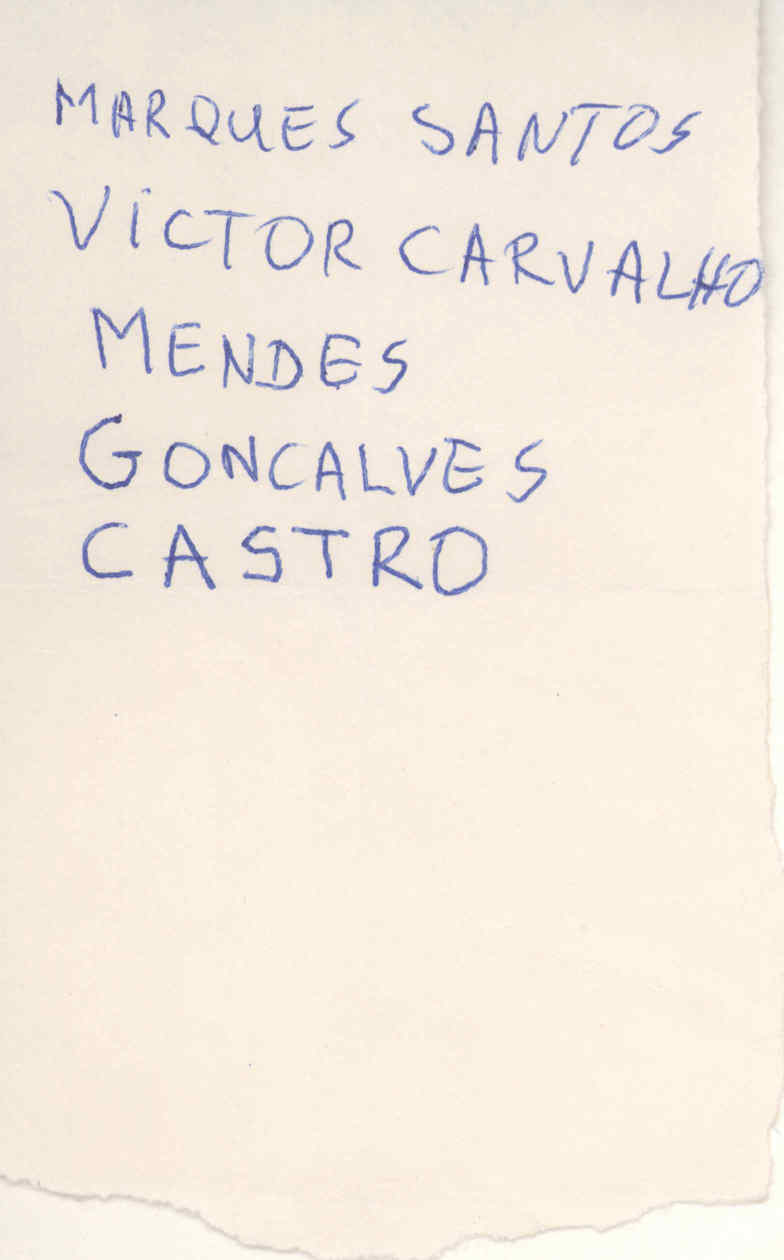 MARQUES SANTOS
VICTOR CARVALHO
MENDES
GONCALVES
CASTRO